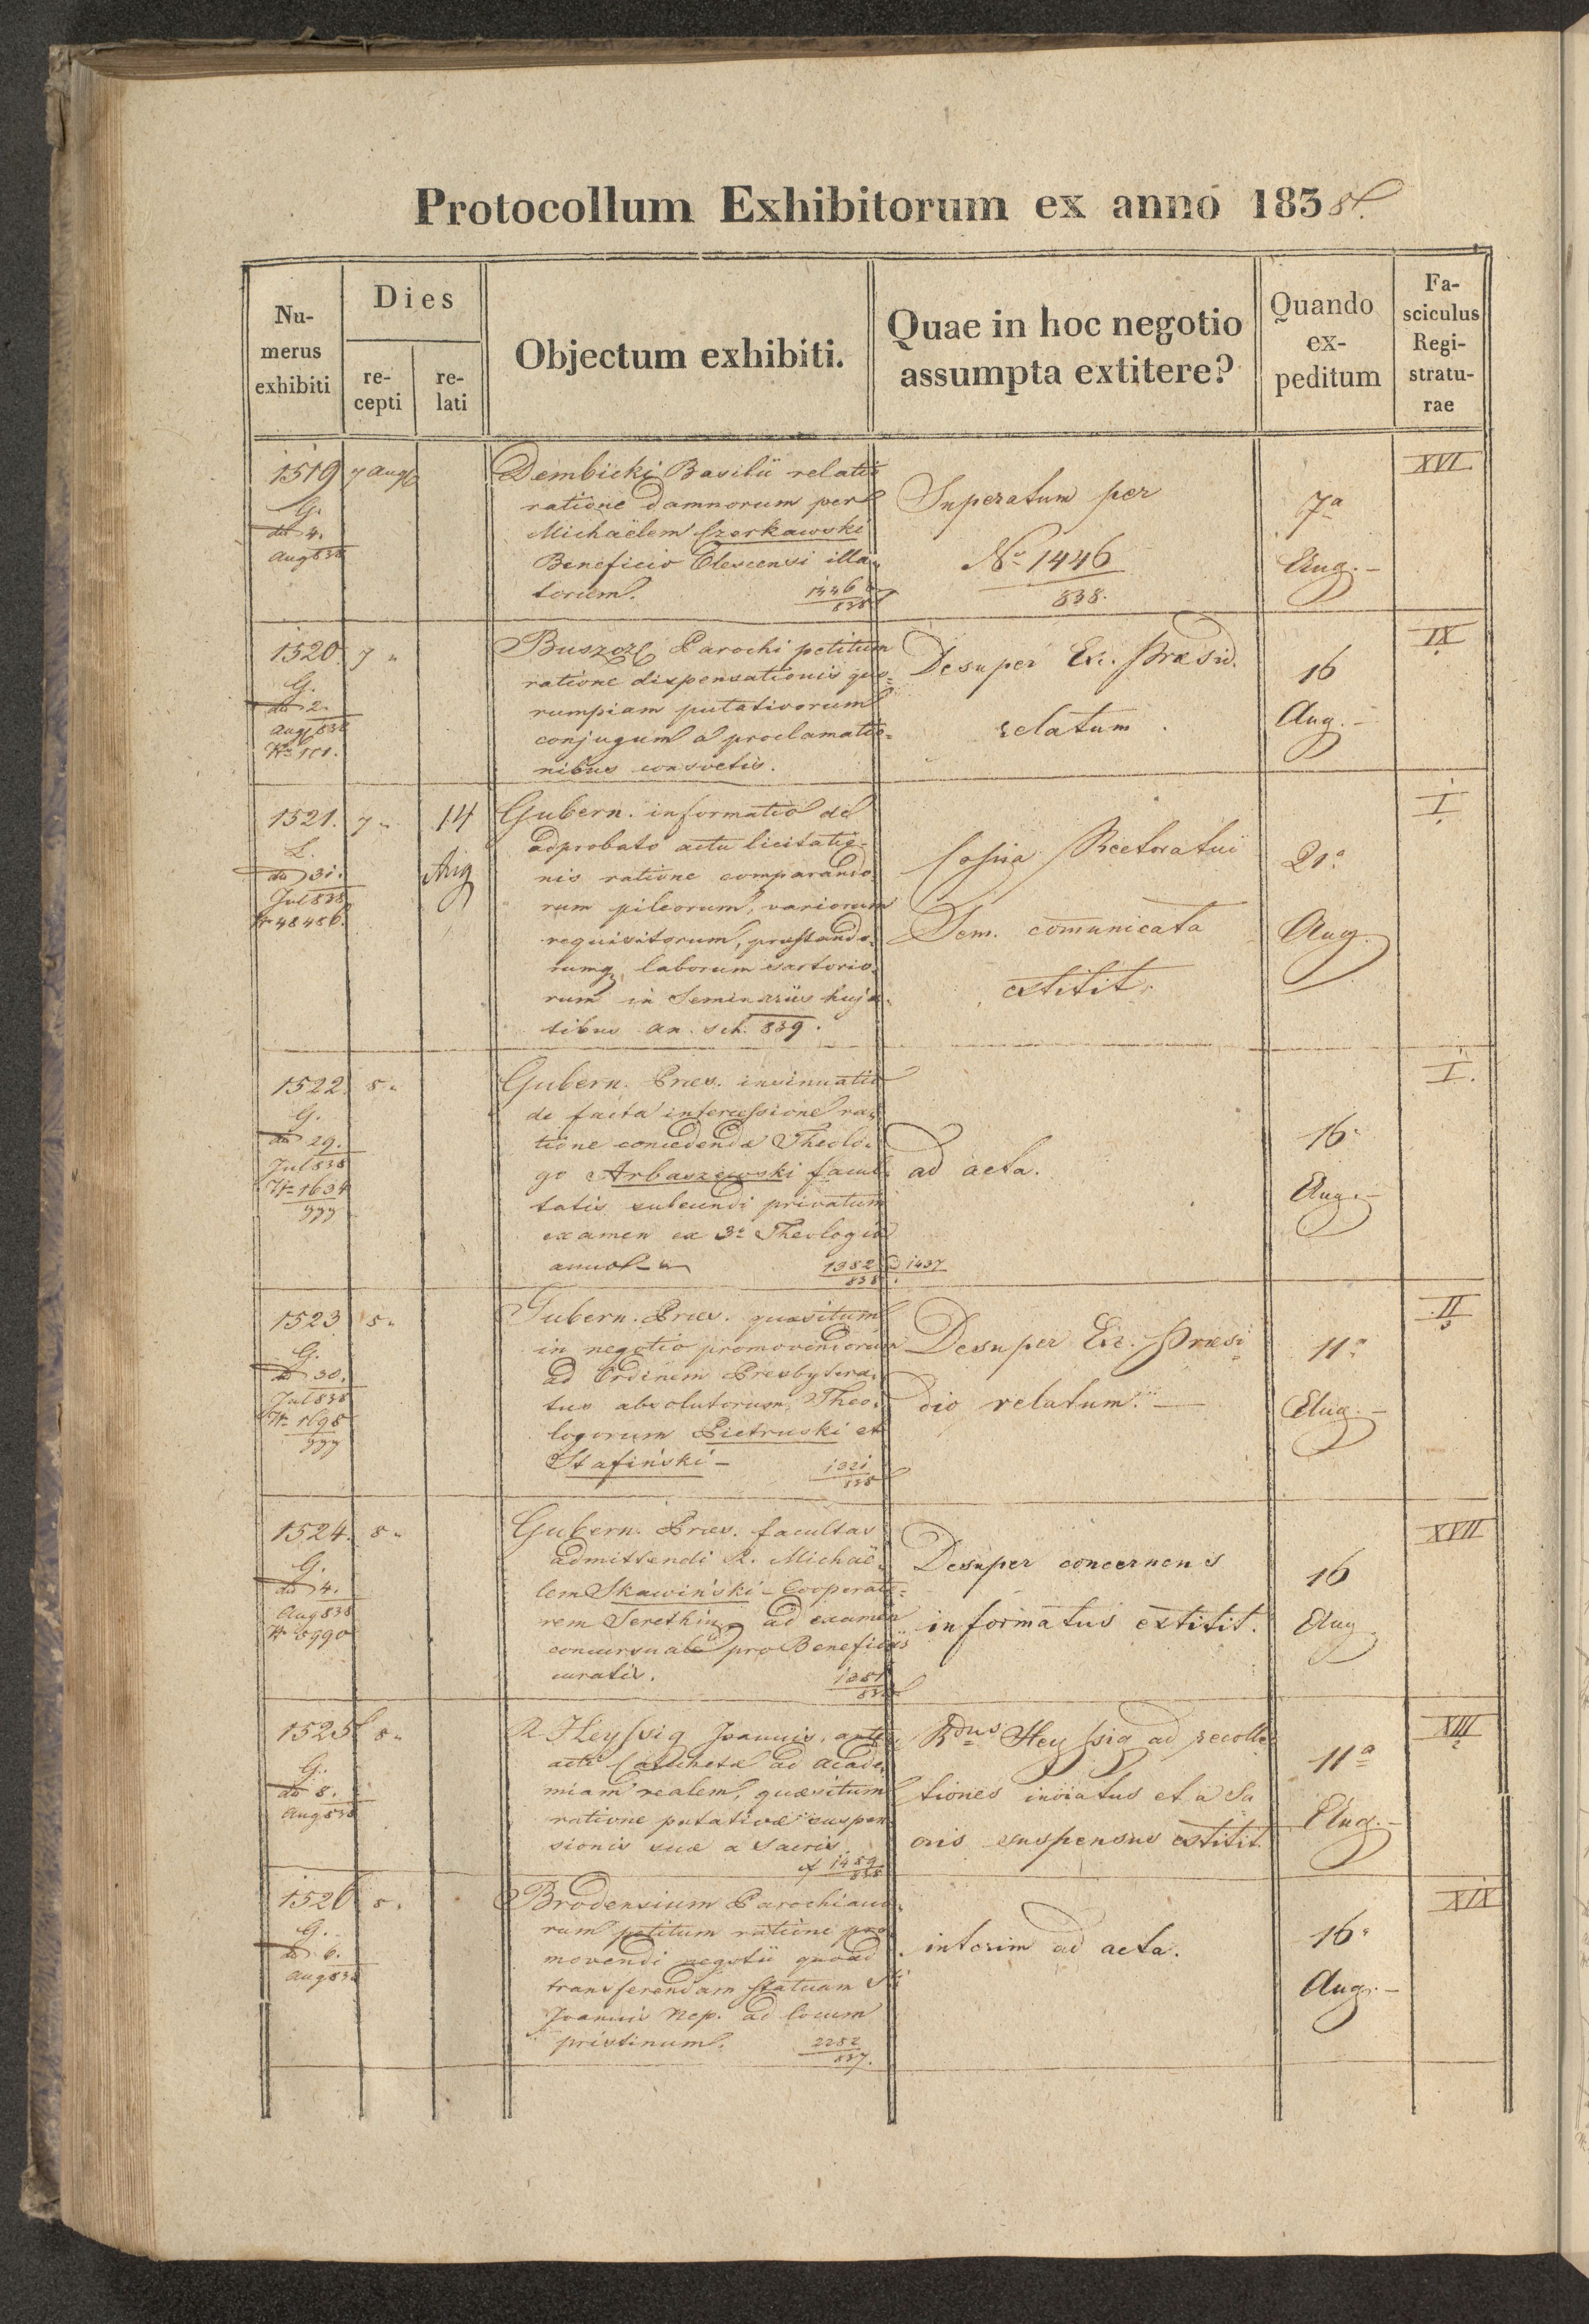 Protocollum Exhibitorum ex anno 1838.
Nu-
merus
exhibiti
Dies
re-
cepti
re-
lati
Objectum exhibiti.
Quae in hoc negotio
assumpta extitere?
Quando
ex-
peditum
Fa-
sciculus
Regi-
stratu-
rae
1519 7 Aug
G.
dto 4.
Aug 838
Dembicki Basilii relatio
ratione damnorum per
Michaëlem Czerkawski
Beneficio illa-
torum. 1446
838
Superatum per
No 1446
838.
7a
Aug.
XVI
1520. 7 "
G.
dto 2.
Aug 838
No 101.
Parochi petitum
ratione dispensationis quo=
rumpiam putativorum
conjugum a proclamatio=
nibus consvetis.
Desuper Exc. Præsid.
relatum.
16
Aug.
IX
1521. 7 " 14
Aug
L.
dto 31.
Jul 838
No 48486.
Gubern. informatio de
adprobato actu licitatio-
nis ratione comparando-
rum pileorum, variorum
requisitorum, præstando-
rumq laborum sartorio-
rum in Seminariis huja-
tibus an. sch. 839.
Copia Rectoratui
Sem. comunicata
extitit.
21a
Aug.
I.
1522. 8 "
G.
dto 29.
Jul 838
No 1634
ggg
Gubern. Præs. insinuatio
de facta intercessione ra-
tione concedendæ Theolo-
go Arbaszewski facul-
tatis subeundi privatum
examen ex 3o Theologiæ
anno 1382 d 1437
838.
ad acta.
16
Aug.
I.
1523 8 "
G.
dto 30.
Jul 838
No 1698
ggg
Gubern. Præs. quæsitum
in negotio promovendorum
ad Ordinem Presbytera-
tus absolutorum Theo-
logorum Pietruski et
Stafiński - 1321
838
Desuper Exc. Præsi
dio relatum.
11a
Aug.
II
1524. 8 "
G.
dto 4.
Aug 838
No
Gubern. Præs. facultas
admittendi R. Michaë-
lem Skawiński - Cooperato=
rem ad examen
concursuale pro Beneficiis
curatis. 1381
838
Desuper concernens
informatus extitit.
16
Aug.
XVII
1525 8 "
G.
dto 8.
Aug 838
R. Heyssig Joannis, ante
acti Catechetæ ad acade-
miam realem, quæsitum
ratione putativæ suspen
sionis suæ a Sacris.
cf 1459
838
Rdus Heyssig ad recolle
ctiones inviatus et a Sa
cris suspensus extitit.
11a
Aug.
XIII
1526 8 "
G.
dto 6.
Aug 838
Brodensium Parochiano-
rum petitum ratione pro
movendi negotii quoad
transferendam statuam Sti
Joannis Nep. ad locum
pristinum. 2282
837.
interim ad acta.
16
Aug.
XIX